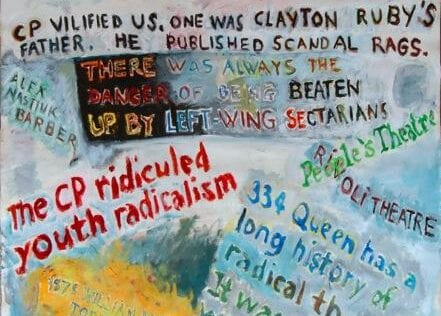 CP VILIFIED US. ONE WAS CLAYTON RUBY'S
FATHER. HE PUBLISHED SCANDAL RAGS.
THERE WAS ALWAYS THE
DANGER OF BEING BEATEN
UP BY LEFT-WING SECTARIANS
ALEX
NASTIUK
BARBER
People's Theatre
RIVOLI THEATRE
The CP ridiculed
youth radicalism
334 Queen has a
long history of
radical th
It was